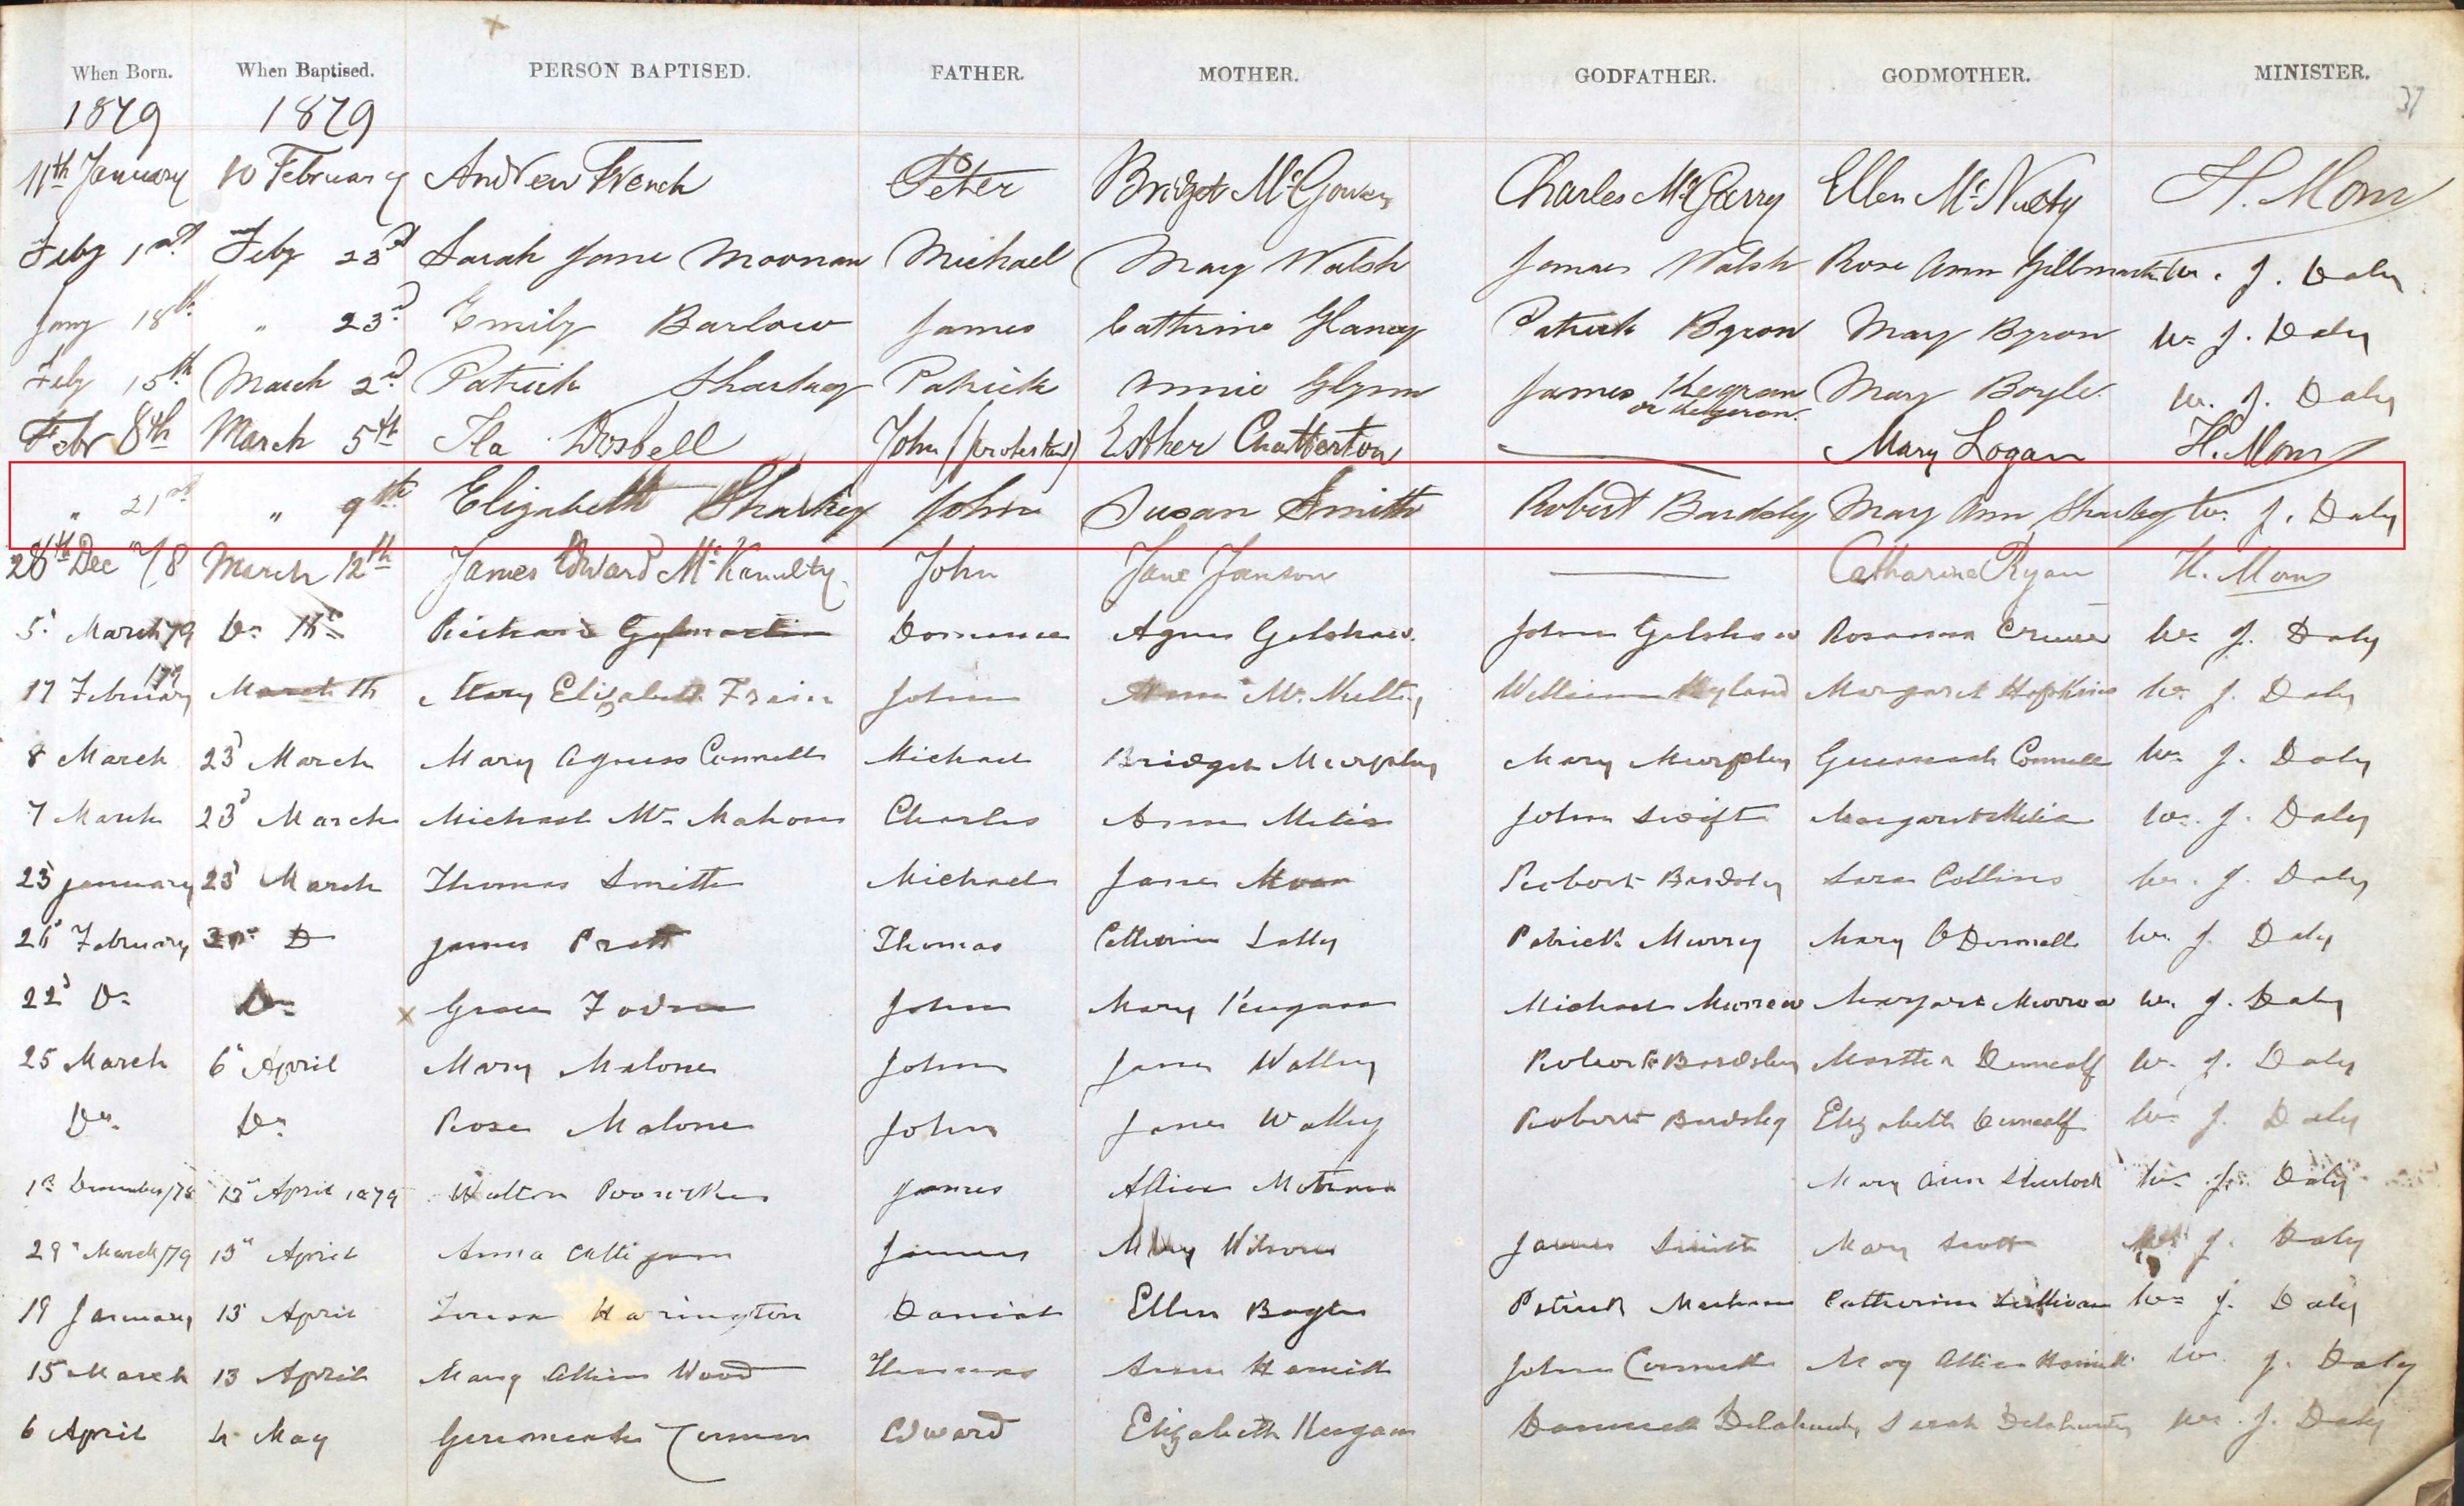 37
When Born. When Baptised. PERSON BAPTISED. FATHER. MOTHER. GODFATHER. GODMOTHER. MINISTER.
1879 1879
11th January 10 February Andrew French Peter Bridget McGowen Charles McGarry Ellen McNulty H. Mom
Feby 1st Feby 23d Sarah Jane Moonan Michael Mary Walsh James Walsh Rose Ann W. J. Daly
Jany 18th " 23d Emily Barlow James Cathrine Glancy Patrick Byron Mary Byron W. J. Daly
Feby 15th March 2d Patrick Sharkey Patrick Annie Glynn James Kegran Mary Boyle W. J. Daly
or
Febr 8th March 5th Ila John (protestant) Esther Chatterton Mary Logan H. Mom
" 21st " 9th Elizabeth Sharkey John Susan Smith Robert Bardsley Mary Ann Sharkey W. J. Daly
28th Dec /78 March 12th James Edward McKanulty John Jane Janson Catharine Ryan H. Mom
5 March 79 Do Richard Gilmartin Agnes Gelshaw John Gelshaw Rosanna W. J. Daly
17 February /79 March Mary Elizabeth Frain John Mc Nulty William Hyland Margaret Hopkins W. J. Daly
8 March 23d March Mary Agness Connell Michael Bridget Murphy Mary Murphy Connell W. J. Daly
7 March 23d March Michael Mc Mahon Charles Ann Melia John Swift Margaret Melia W. J. Daly
23d January 23d March Thomas Smith Michael Jane Robert Bardsley Sara Collins W. J. Daly
February Do James Pratt Thomas Catherine Lally Patrick Murry Mary O Donnell W. J. Daly
22d Do Do John Mary Keegan Michael Murrow Margaret Murrow W. J. Daly
25 March 6 April Mary Malone John Jane Walley Robert Bardsley Martha Duncalf W. J. Daly
Do Do Rose Malone John Jane Walley Robert Bardsley Elizabeth Duncalf W. J. Daly
1st December/78 13 April 1879 Walter James Mary Ann W. J. Daly
29 March/79 13 April Anna James Mary James Smith Mary Scott J. Daly
19 January 13 April Harington Daniel Ellen Patrick Catherine Sullivan W. J. Daly
15 March 13 April Mary Wood Thomas Ann John Connell W. J. Daly
6 April 4 May Edward Elizabeth Keegan Sarah W. J. Daly